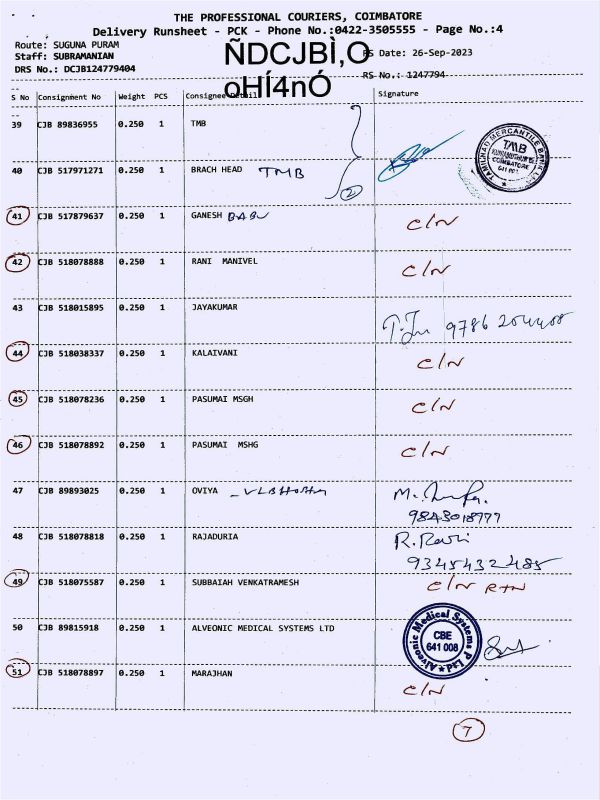 THE PROFESSIONAL COURIERS, COIMBATORE
Delivery Runsheet - PCK - Phone No.:0422-3505555 - Page No.:4
Route: SUGUNA PURAM
Staff: SUBRAMANIAN
DRS No.: DCJB124779404
ÑDCJBÌ,O
oHÍ4nÓ
RS Date: 26-Sep-2023
RS No.: 1247794
S No Consignment No Weight PCS Consignee Detail Signature
39 CJB 89836955 0.250 1 TMB
40 CJB 517971271 0.250 1 BRACH HEAD TMB 2
TAMILNAD MERCANTILE BANK LTD TMB COIMBATORE 641 001
41 CJB 517879637 0.250 1 GANESH BABU C/N
42 CJB 518078888 0.250 1 RANI MANIVEL C/N
43 CJB 518015895 0.250 1 JAYAKUMAR 9786204408
44 CJB 518038337 0.250 1 KALAIVANI C/N
45 CJB 518078236 0.250 1 PASUMAI MSGH C/N
46 CJB 518078892 0.250 1 PASUMAI MSHG C/N
47 CJB 89893025 0.250 1 OVIYA
9843018977
48 CJB 518078818 0.250 1 RAJADURIA R. Ravi
9345432485
49 CJB 518075587 0.250 1 SUBBAIAH VENKATRAMESH C/N RTN
50 CJB 89815918 0.250 1 ALVEONIC MEDICAL SYSTEMS LTD
Alveonic Medical Systems P Ltd CBE 641 008
51 CJB 518078897 0.250 1 MARAJHAN C/N
7